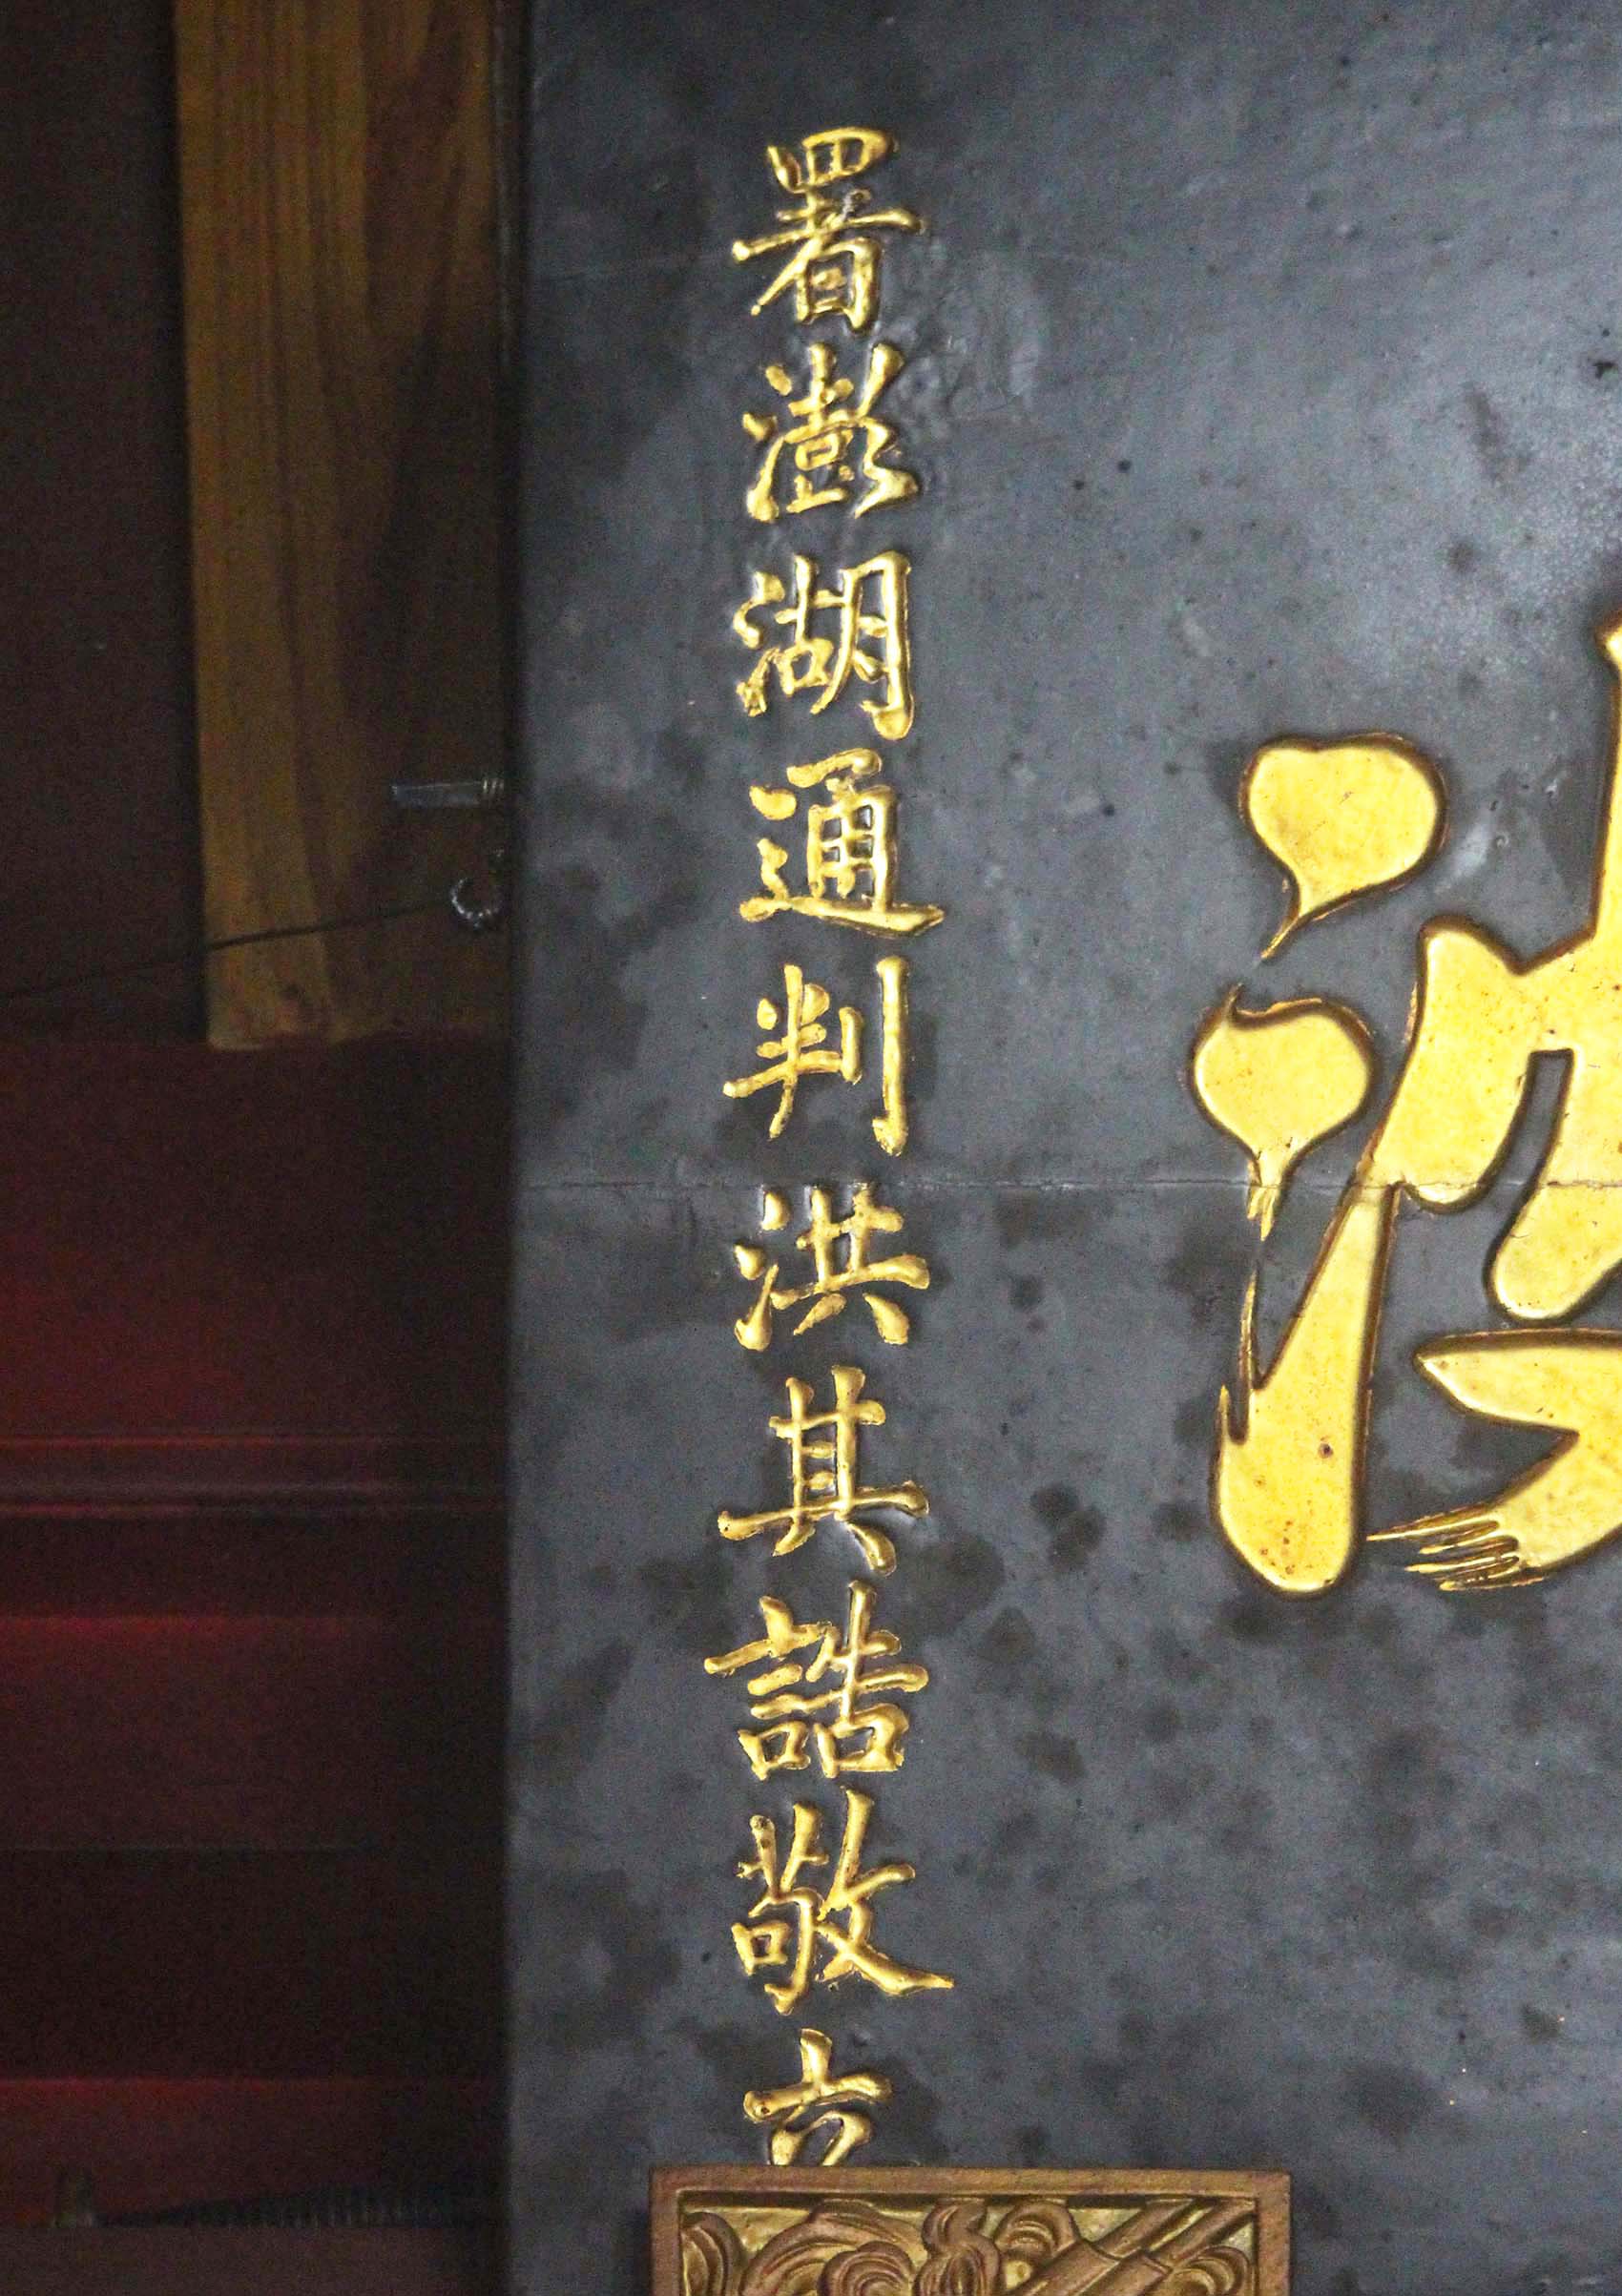 署澎湖通判洪其誥敬